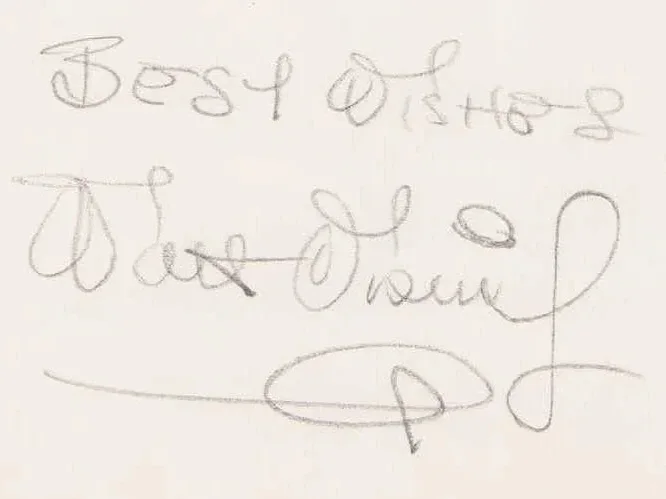 Best Wishes
Walt Disney